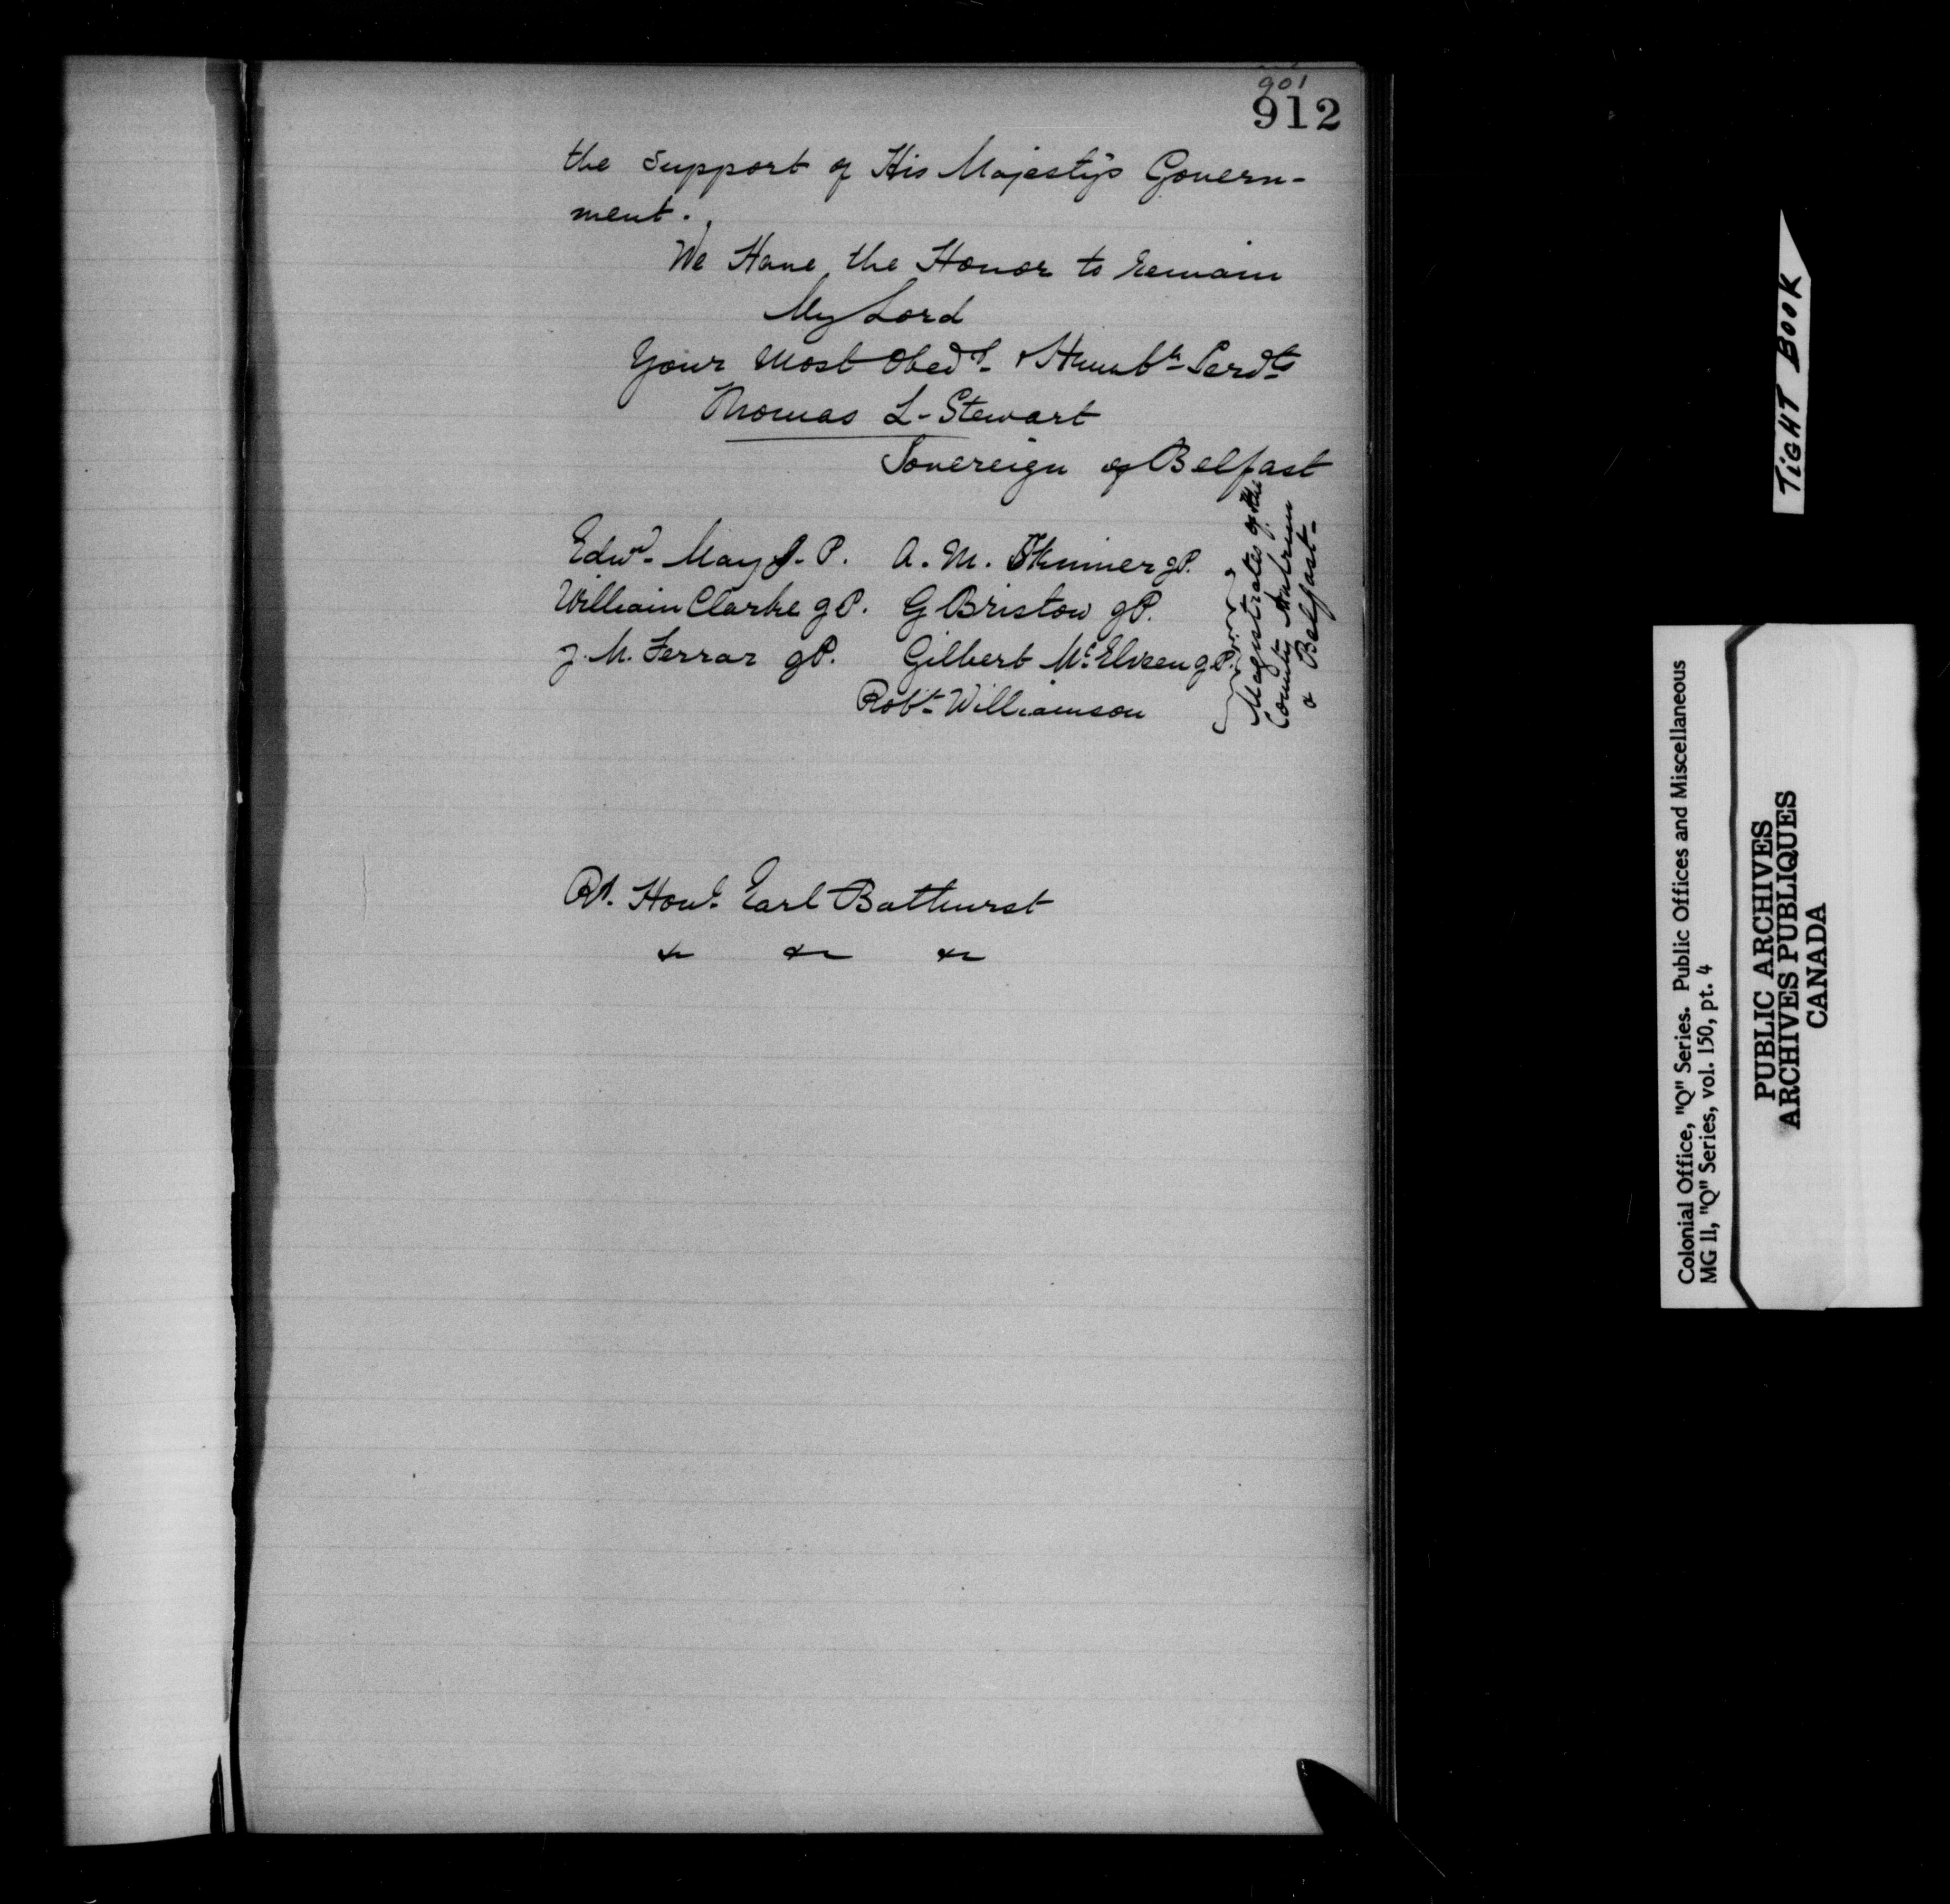 901
912
the Support of His Majesty's Govern-
ment.
We Have the Honor to remain
My Lord
Your Most Obedt. & Humble Servts
Thomas L. Stewart
Sovereign of Belfast
Edwd. May J. P. A. M. Skinner JP.
William Clarke JP. G Bristow JP.
J. M. Ferrar JP. Gilbert McIlveen JP.
Robt. Williamson
Magistrates of the
County Antrim
& Belfast-
Rt. Honl. Earl Bathurst
&c &c &c
TIGHT BOOK
Colonial Office, "Q" Series. Public Offices and Miscellaneous
MG 11, "Q" Series, vol. 150, pt. 4
PUBLIC ARCHIVES
ARCHIVES PUBLIQUES
CANADA